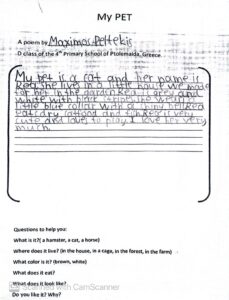 My PET
A poem by Maximos Peltekis
D class of the 4th Primary School of Ptolemaida, Greece
My pet is a cat and her name is
Rea. She lives in a little house we made
for her in the garden. Rea is grey and
white with black stripes. She wears a
little blue collar with a shiny bell. Rea
eats dry catfood and fish. Rea is very
cute and loves to play. I love her very
much.
Questions to help you:
What is it?( a hamster, a cat, a horse)
Where does it live? (in the house, in a cage, in the forest, in the farm)
What color is it? (brown, white)
What does it eat?
What does it look like?
Do you like it? Why?
Scanned with CamScanner